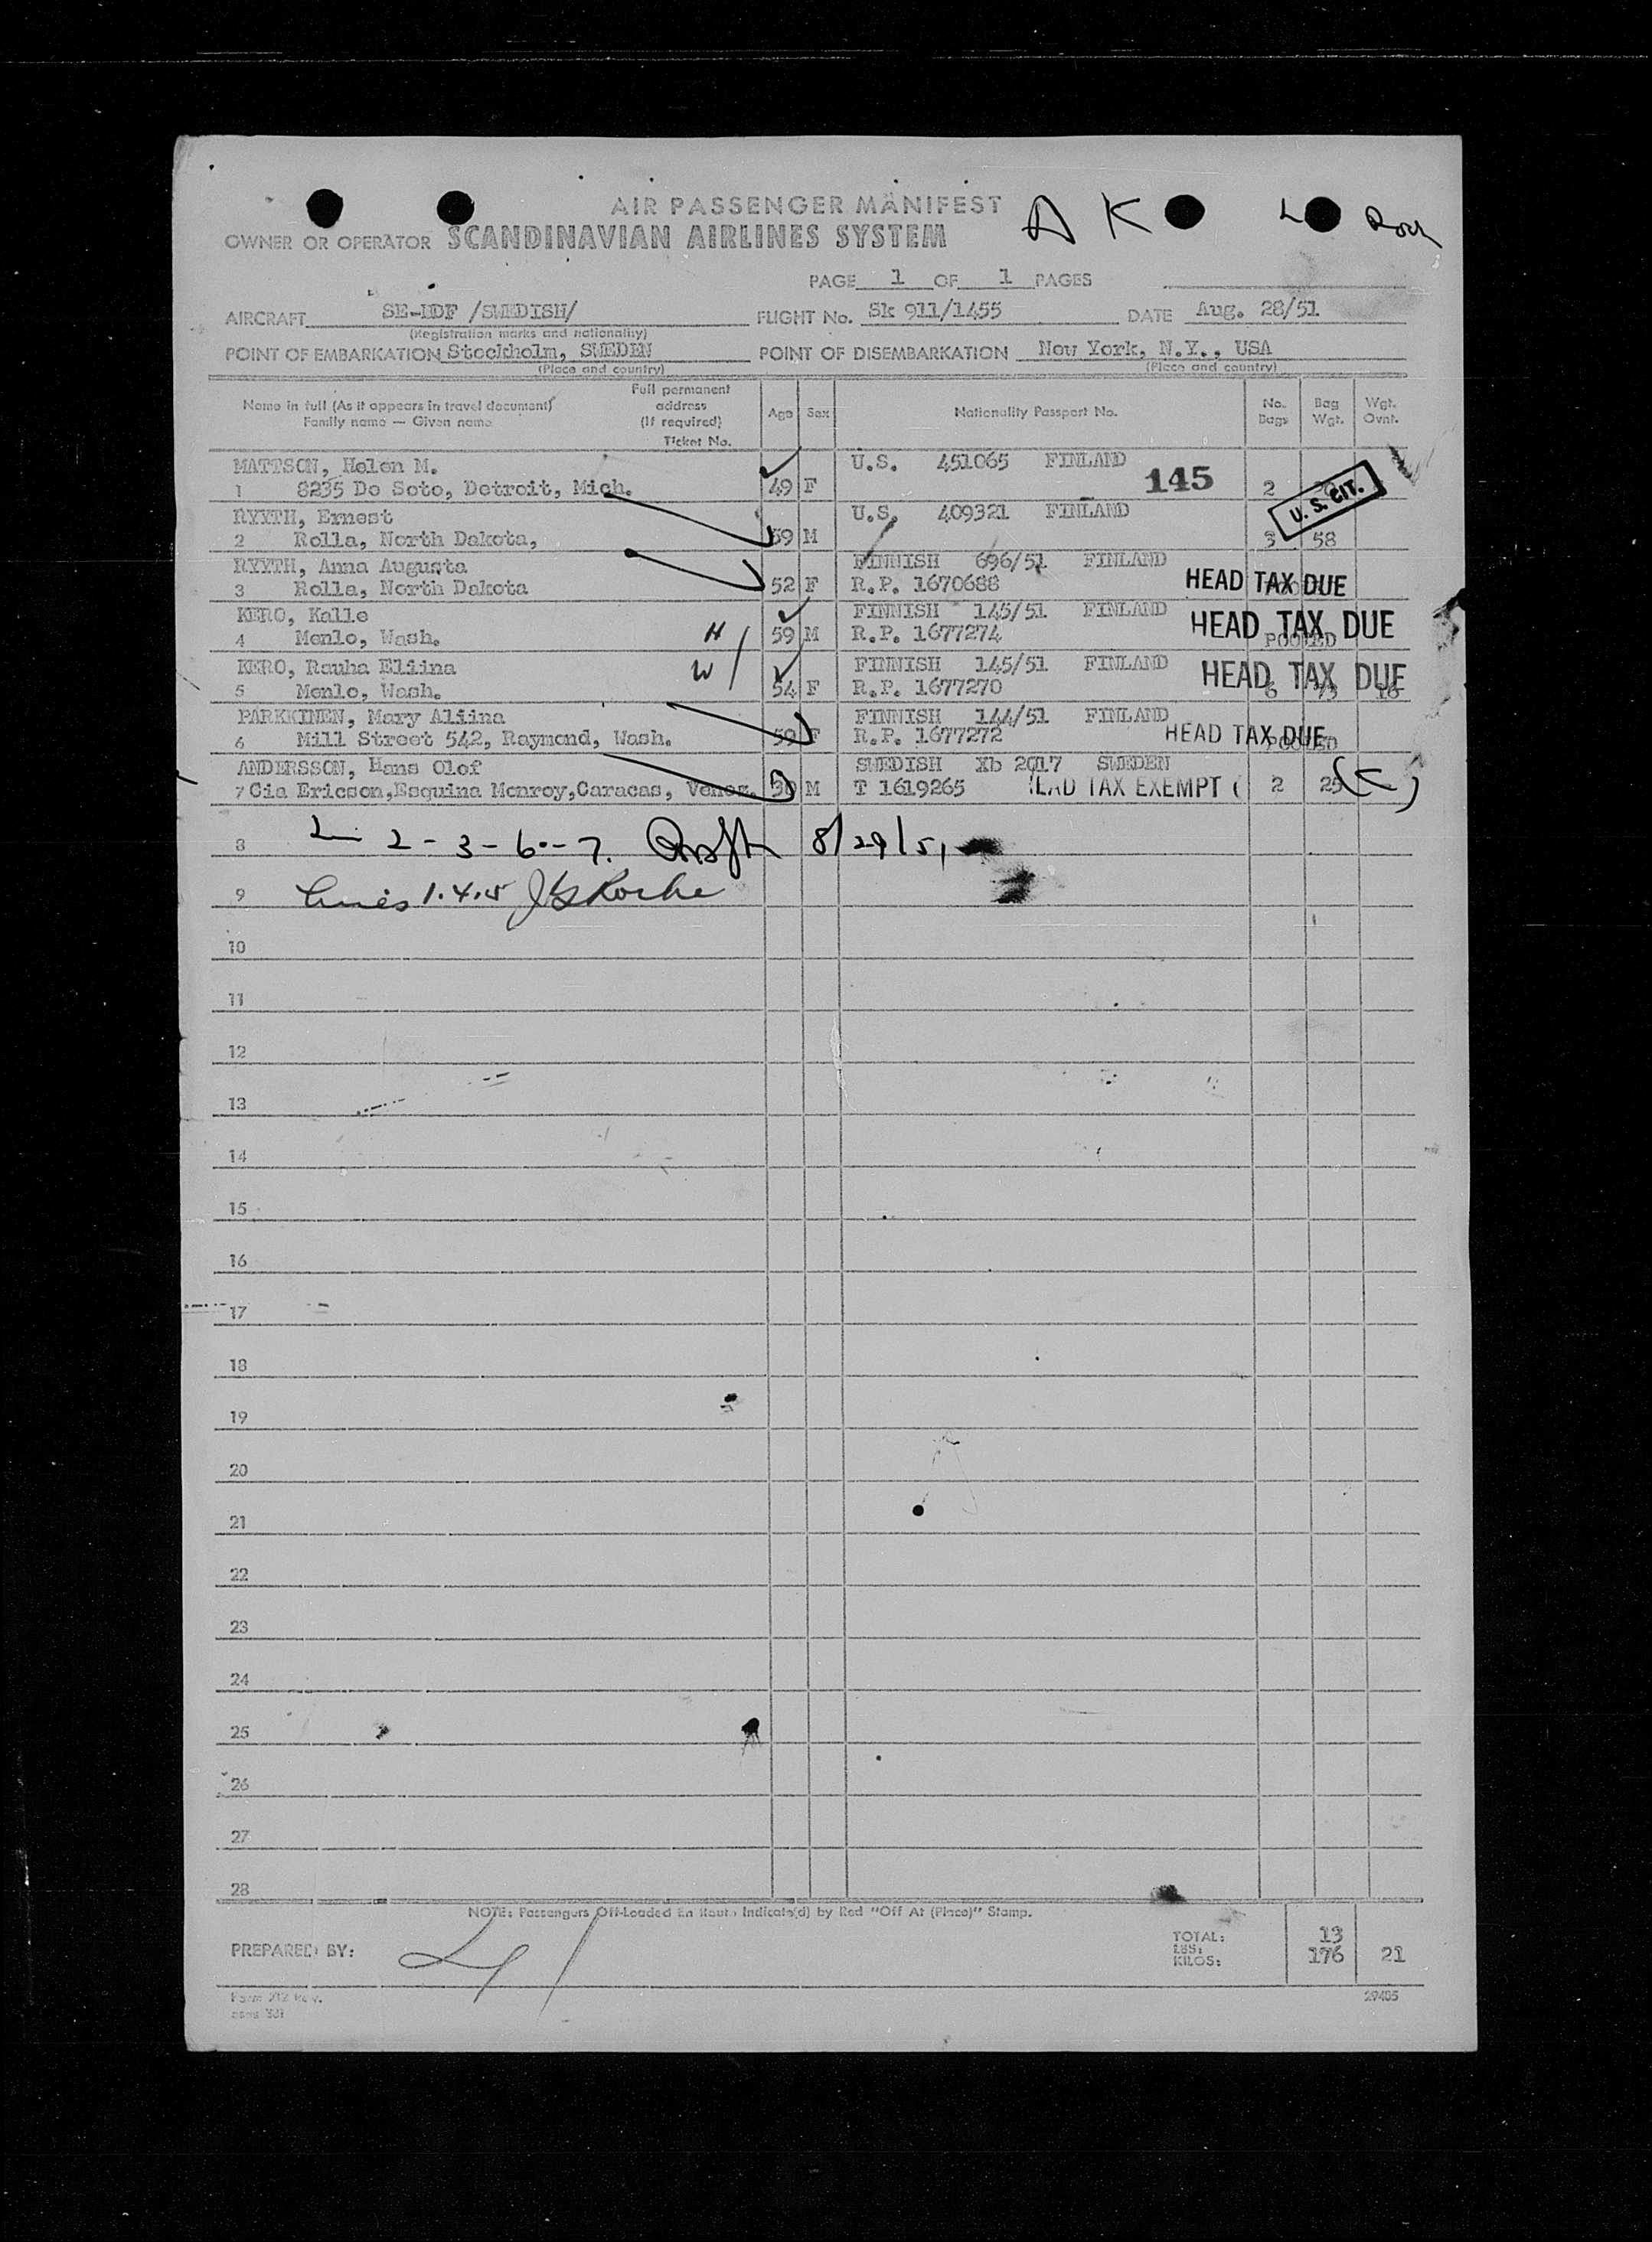 AIR PASSENGER MANIFEST
A K L Roch
OWNER OR OPERATOR SCANDINAVIAN AIRLINES SYSTEM
PAGE 1 OF 1 PAGES
AIRCRAFT /SWEDISH/ FLIGHT No. Sk 911/1455 DATE Aug. 28/51
(Registration marks and nationality)
POINT OF EMBARKATION Stockholm, SWEDEN POINT OF DISEMBARKATION New York, N.Y., USA
(Place and country) (Place and country)
Name in full (As it appears in travel document) Family name — Given name Full permanent address (If required) Ticket No. Age Sex Nationality Passport No. No. Bags Bag Wgt. Wgt. Ovnt.
MATTSON, Helen M. U.S. 451065 FINLAND
1 8235 De Soto, Detroit, Mich. 49 F 145 2 U. S. CIT.
RYYTH, Ernest U.S. 409321 FINLAND
2 Rolla, North Dakota, 59 M 3 58
RYYTH, Anna Augusta FINNISH 696/51 FINLAND
3 Rolla, North Dakota 52 F R.P. 1670688 HEAD TAX DUE
KERO, Kalle FINNISH 145/51 FINLAND
4 Menlo, Wash. H 59 M R.P. 1677274 HEAD TAX DUE POOLED
KERO, Rauha Eliina FINNISH 145/51 FINLAND
5 Menlo, Wash. W 54 F R.P. 1677270 HEAD TAX DUE 6 73 16
PARKKINEN, Mary Aliina FINNISH 144/51 FINLAND
6 Mill Street 542, Raymond, Wash. 59 F R.P. 1677272 HEAD TAX DUE POOLED
ANDERSSON, Hans Olof SWEDISH Xb 2017 SWEDEN
7 Cia Ericson,Esquina Monroy,Caracas, Venez. 30 M T 1619265 HEAD TAX EXEMPT ( 2 25
8 2-3-6-7. 8/29/51
9 Lines 1.4.5 Roche
10
11
12
13
14
15
16
17
18
19
20
21
22
23
24
25
26
27
28
NOTE: Passengers Off-Loaded En Route Indicate(d) by Red "Off At (Place)" Stamp.
PREPARED BY: TOTAL: 13
LBS:
KILOS: 176 21
Form 212 Rev.
29405